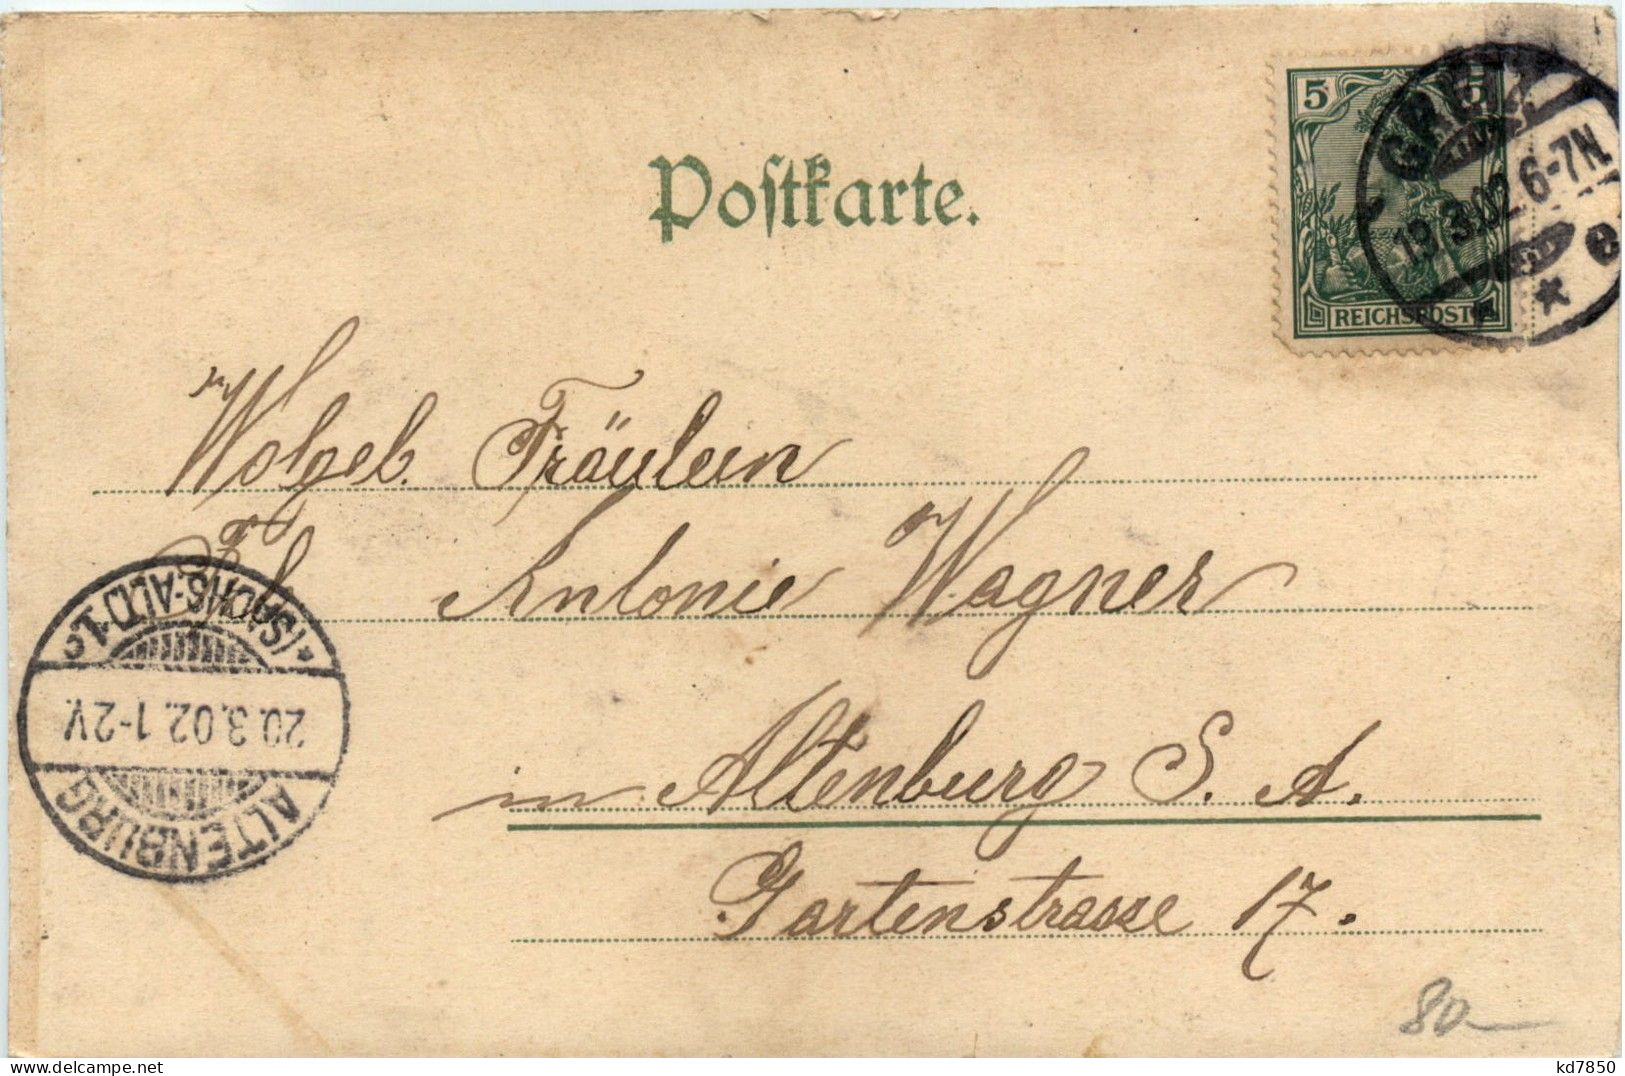 5 5
GREIZ
19.3.02. 6-7N.
* * e
REICHSPOST
Postkarte.
Wolgeb. Fräulein
Frl. Antonie Wagner
in Altenburg S. A.
Gartenstrasse 17.
ALTENBURG
20.3.02. 1-2V.
*(SACHS-ALT.) 1.c
80
kd7850